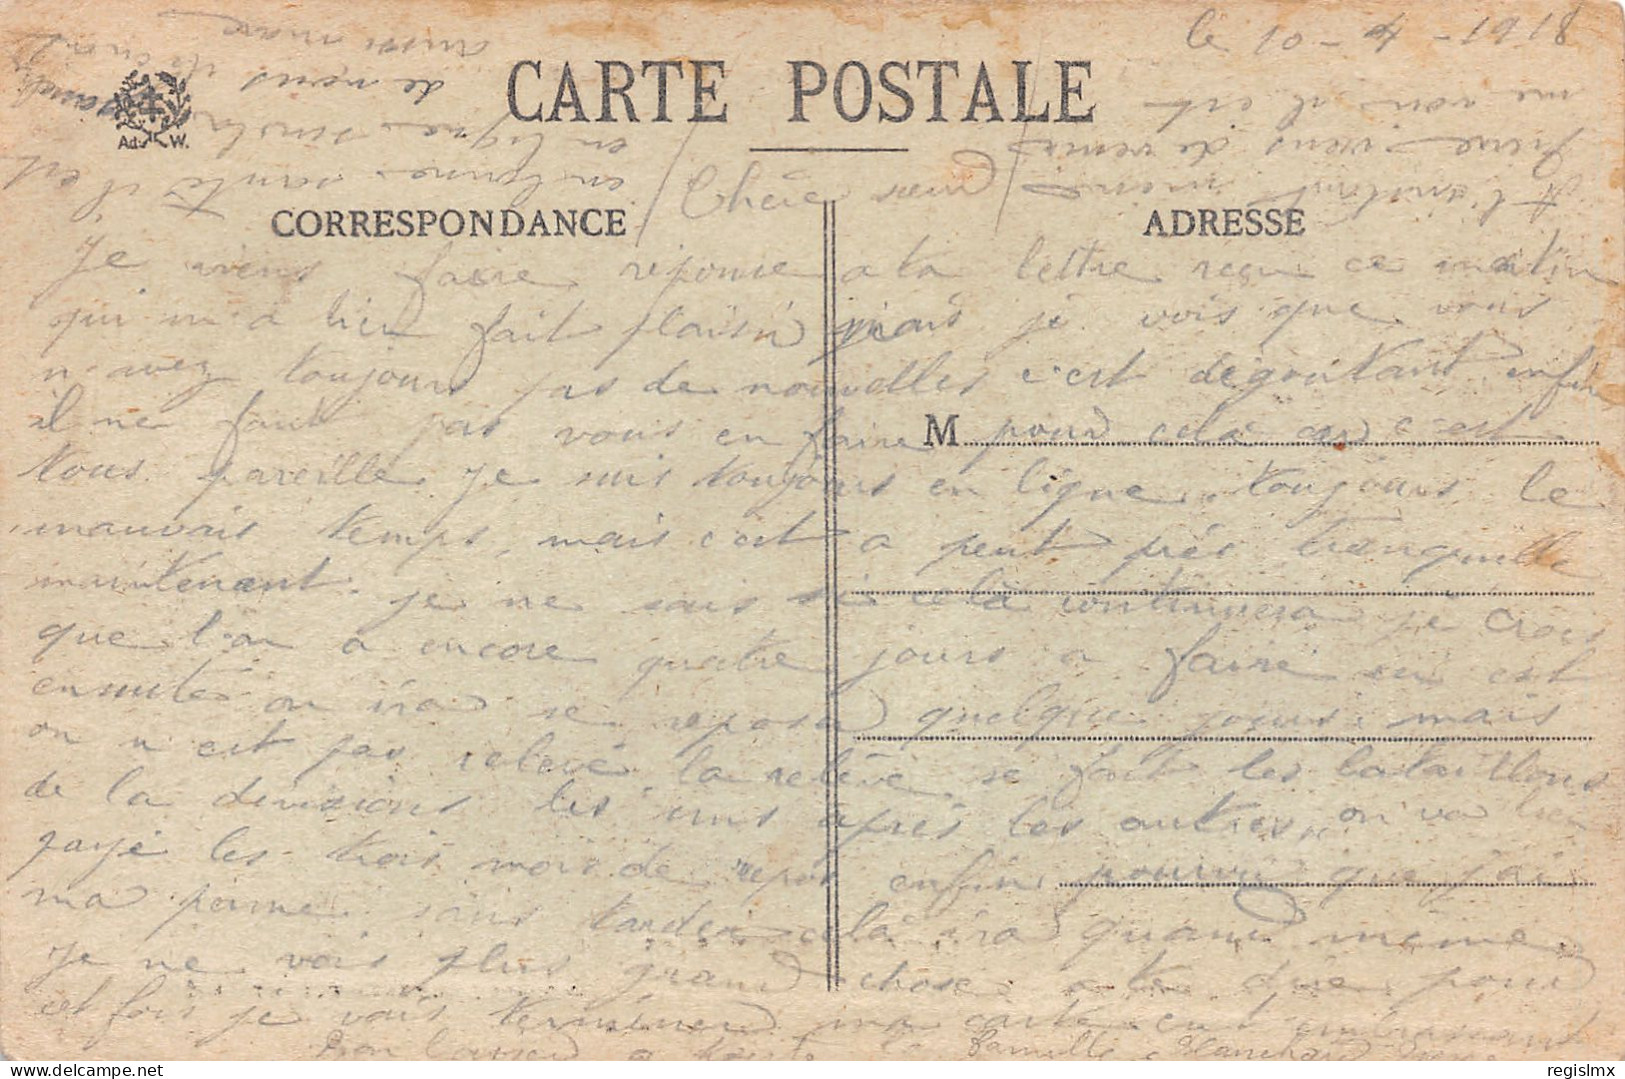 le 10-4-1918
CARTE POSTALE
Ad. W.
CORRESPONDANCE
ADRESSE
Chère
Je viens faire réponse a ta lettre reçu ce matin
qui m'a bien fait plaisir mais je vois que vous
n'avez toujours pas de nouvelles c'est dégoutant enfin
il ne faut pas vous en faire M pour celà car c'est
tous pareille Je suis toujours en ligne toujours le
mauvais temps, mais c'est a peut près tranquille
maintenant. je ne sais si celà continuera je crois
que l'on a encore quatre jours a faire
ensuite on ira se reposer quelque jours mais
on n'est pas relevé la relève se fait les bataillons
de la divisions les uns après les autres, on va bien
payé les trois mois de repos enfin pourvu que j'ai
ma perme sans tarder celà ira quand même
Je ne vois plus grand chose a te dire pour
cet fois je vais terminer ma carte en t'embrassant
Bon a toute la famille Blanchard
A l'instant
Pierre viens de venir
me voir il est
en bonne santé il est
en ligne
de venir
aussi
regislmx